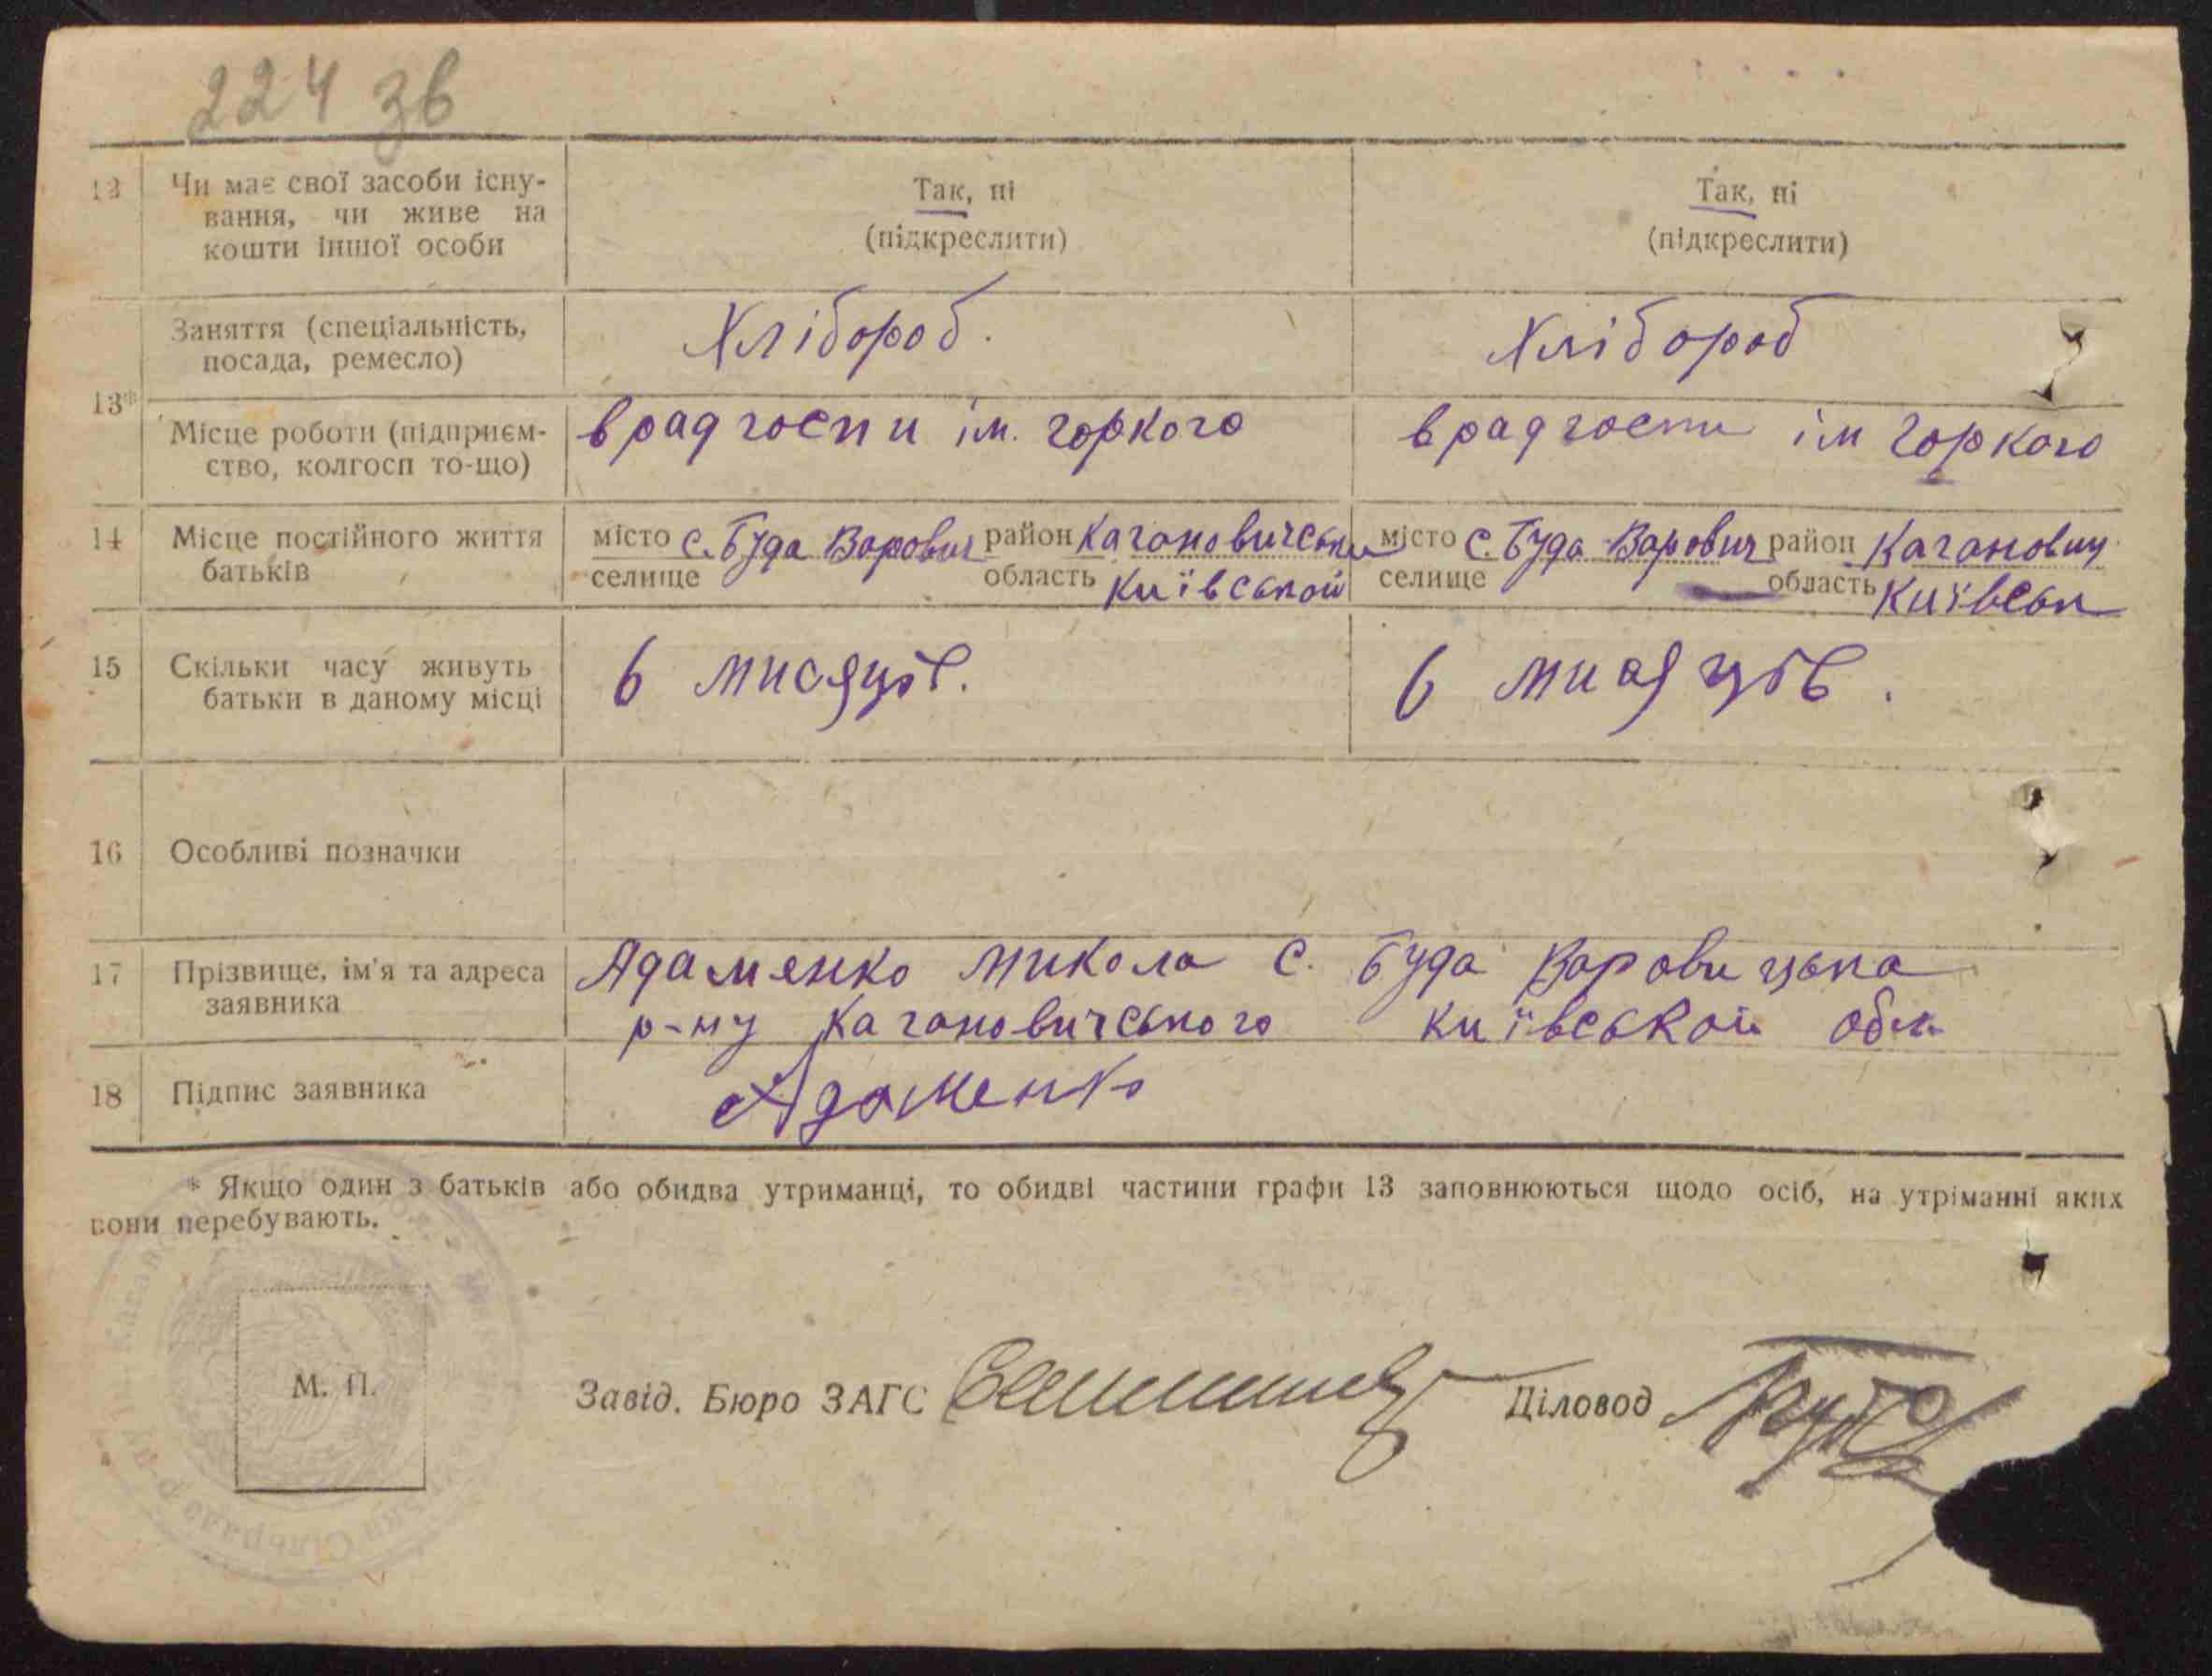 224 зв
12 Чи має свої засоби існу-
вання, чи живе на
кошти іншої особи
Так, ні
(підкреслити)
Так, ні
(підкреслити)
13*
Заняття (спеціальність,
посада, ремесло)
Хлібороб.
Хлібороб
Місце роботи (підприєм-
ство, колгосп то-що)
в радгоспи ім. горкого
в радгоспи ім Горкого
14 Місце постійного життя
батьків
місто с. Буда Варович район Кагановичськи
селище область Київськой
місто с. Буда Варович район Каганович
селище область Київськ
15 Скільки часу живуть
батьки в даному місці
6 мисяцов.
6 мисяцов.
16 Особливі позначки
17 Прізвище, ім'я та адреса
заявника
Адаменко Микола с. Буда Варовицька
р-ну Кагановичського Київськой обл
18 Підпис заявника
Адаменко
* Якщо один з батьків або обидва утриманці, то обидві частини графи 13 заповнюються щодо осіб, на утріманні яких
вони перебувають.
М. П.
Завід. Бюро ЗАГС
Діловод